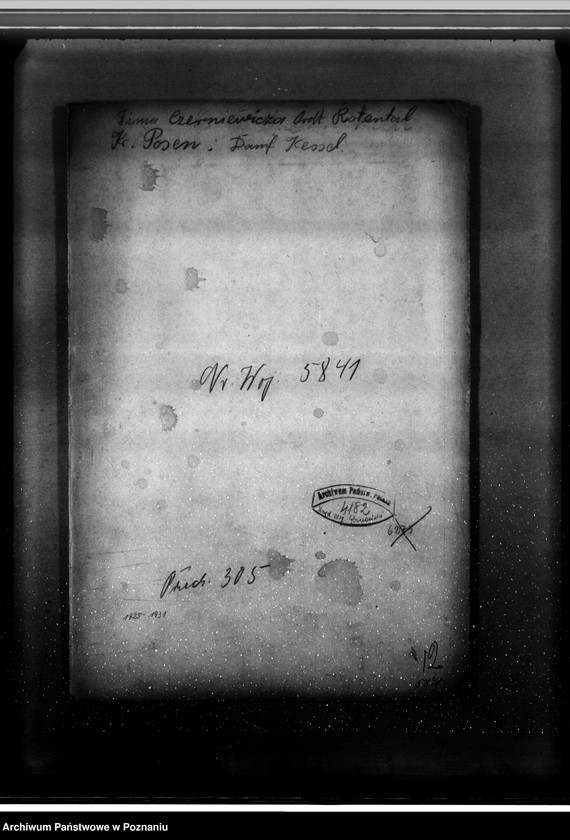 Firma Czerniewicka Brdt Rotental
Kr. Posen: Dampf Kessel.
Nr. Woj. 5841
Archiwum Państw. Poznań
4182
Przech. 305
1925-1931
12
Archiwum Państwowe w Poznaniu